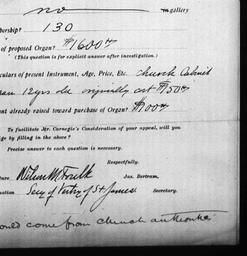 no in gallery
bership? 130
of proposed Organ? $1600 00
(This question is for explicit answer after investigation.)
culars of present Instrument, Age, Price, Etc. Church Cabinet
12 yrs old originally cost $150 00
nt already raised toward purchase of Organ? $900 00
To facilitate Mr. Carnegie's Consideration of your appeal, will you
ge by filling in the above?
Precise answer to each question is necessary.
Respectfully,
ture Jas. Bertram,
ation Secy of Vestry of St James Secretary.
ould come from church authorities